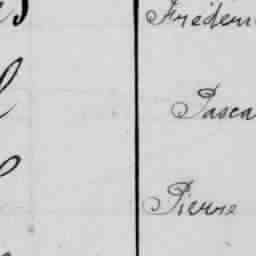 Frédéri
Pasca
Pierre